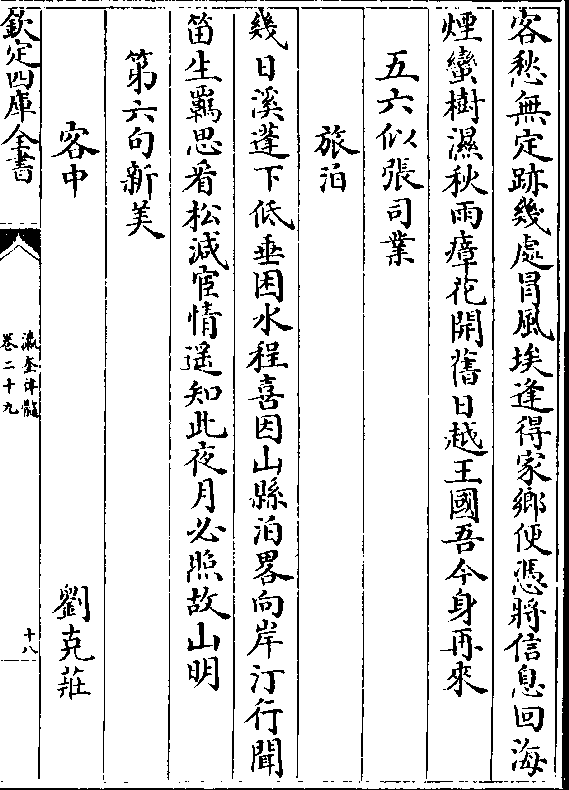 客愁無定跡幾處冒風埃逢得家鄉便憑將信息回海
煙蠻樹濕秋雨瘴花開舊日越王國吾今身再來
五六似張司業
旅泊
幾日溪蓬下低垂困水程喜因山縣泊畧向岸汀行聞
笛生羈思看松減宦情遥知此夜月必照故山明
第六句新美
客中
劉克莊
欽定四庫全書
瀛奎律髓
卷二十九
十八